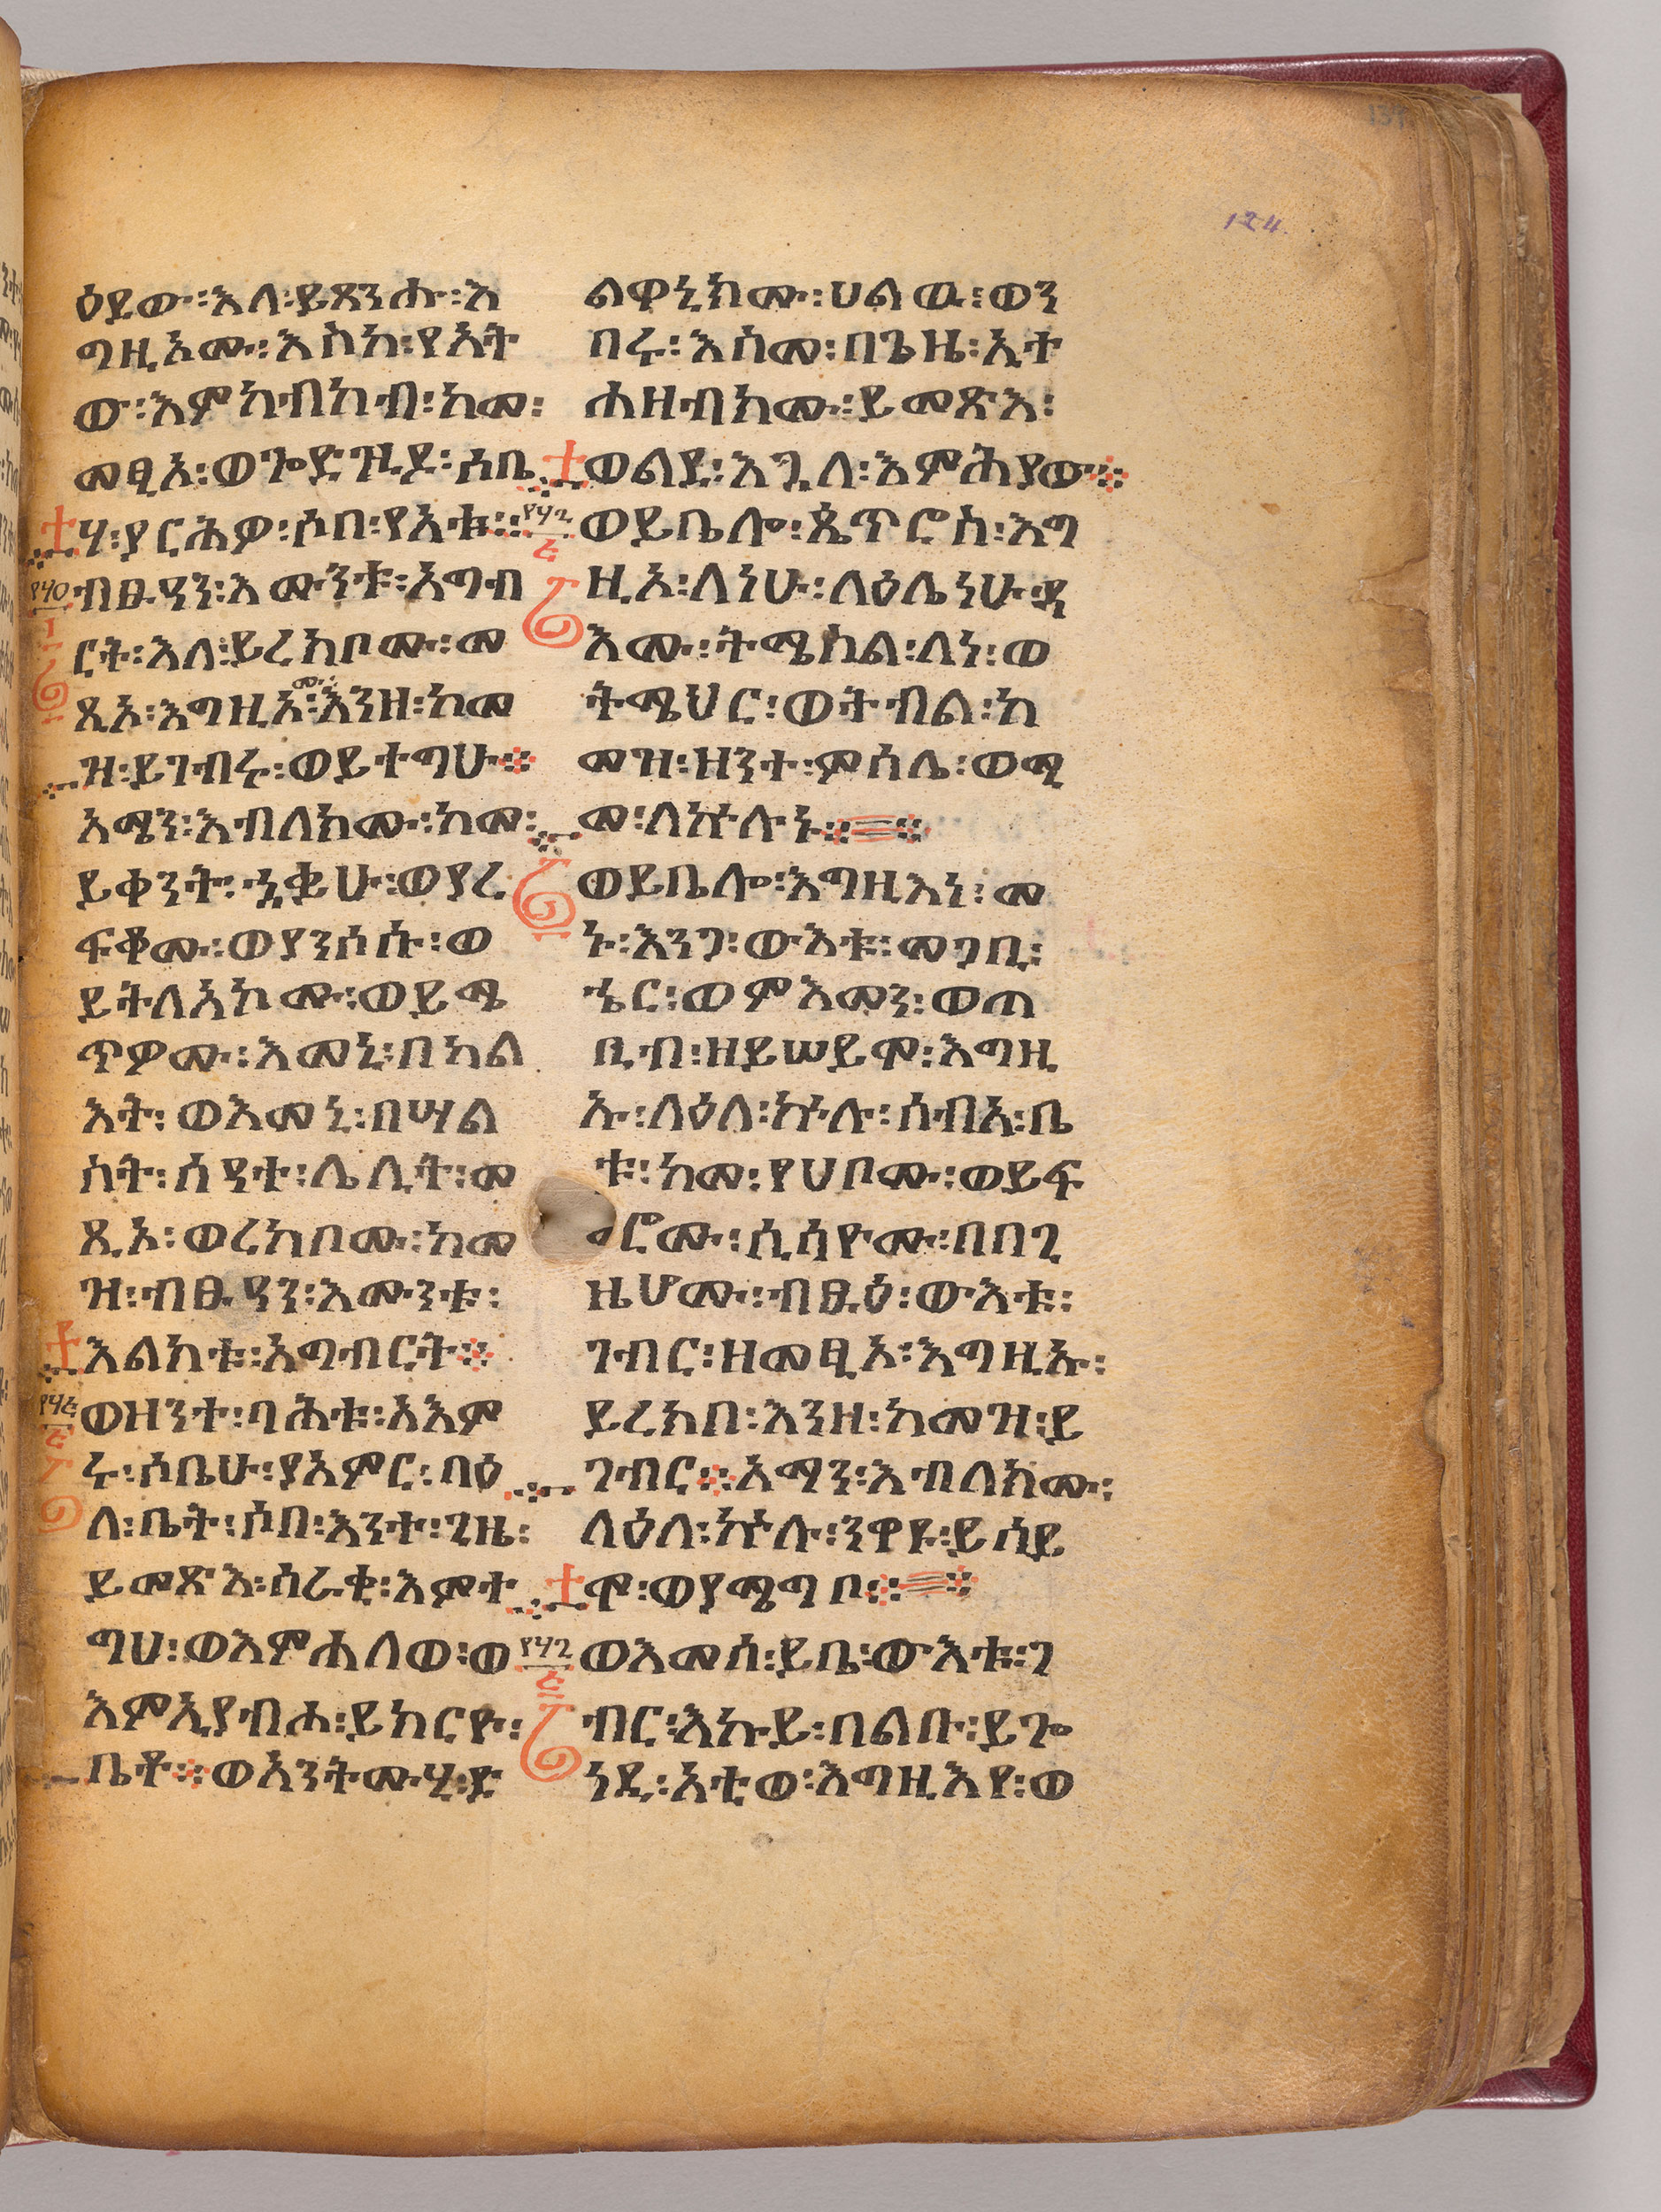 124
ዕደው፡እለ፡ይጸንሑ፡እ
ግዚኦሙ፡እስከ፡የአት
ው፡እምከብካብ፡ከመ፡
መፂኦ፡ወጐድጒዶ፡ሰቤ
ሃ፡ያርሕዎ፡ሶበ፡የአቱ።
ብፁዓን፡እሙንቱ፡አግብ
ርት፡እለ፡ይረክቦሙ፡መ
ጺኦ፡እግዚኦሙ፡እንዘ፡ከመ
ዝ፡ይገብሩ፡ወይተግሁ፨
አማን፡እብለክሙ፡ከመ፡
ይቀንት፡ሗቌሁ፡ወያረ
ፍቆሙ፡ወያንሶሱ፡ወ
ይትለአኮሙ፡ወይሜ
ጥዎሙ፡እመኒ፡በካል
እት፡ወእመኒ፡በሣል
ስት፡ሰዓተ፡ሌሊት፡መ
ጺኦ፡ወረከቦሙ፡ከመ
ዝ፡ብፁዓን፡እሙንቱ፡
እልክቱ፡አግብርት፨
ወዘንተ፡ባሕቱ፡አእም
ሩ፡ሶቤሁ፡ያአምር፡በዕ
ለ፡ቤት፡ሶበ፡እንተ፡ጊዜ፡
ይመጽእ፡ሰራቂ፡እምተ
ግህ፡ወእምሐለወ፡ወ
እምኢያብሐ፡ይከርዮ፡
ቤቶ፨ወአንትሙሂ፡ድ
ልዋኒክሙ፡ሀልዉ፡ወን
በሩ፡እስመ፡በጊዜ፡ኢተ
ሐዘብክሙ፡ይመጽእ፡
ወልደ፡እጓለ፡እምሕያው፨
ወይቤሎ፡ጴጥሮስ፡እግ
ዚኦ፡ለነሁ፡ለዕሌነሁ፡ዳ
እሙ፡ትሜስል፡ለነ፡ወ
ትሜህር፡ወትብል፡ከ
መዝ፡ዘንተ፡ምሳሌ፡ወሚ
መ፡ለኵሉኑ፨
ወይቤሎ፡እግዚእነ፡መ
ኑ፡እንጋ፡ውእቱ፡መጋቢ፡
ኄር፡ወምእመን፡ወጠ
ቢብ፡ዘይሠይሞ፡እግዚ
ኡ፡ለዕለ፡ኵሉ፡ሰብአ፡ቤ
ቱ፡ከመ፡የሀቦሙ፡ወይፍ
ሮሙ፡ሲሳዮሙ፡በበጊ
ዜሆሙ፡ብፁዕ፡ውእቱ፡
ገብር፡ዘመፂኦ፡እግዚኡ፡
ይረክበ፡እንዘ፡ከመዝ፡ይ
ገብር፨አማን፡እብለክሙ፡
ለዕለ፡ኵሉ፡ንዋዩ፡ይሰይ
ሞ፡ወያሜግቦ፨
ወእመሰ፡ይቤ፡ውእቱ፡ገ
ብር፡እኩይ፡በልቡ፡ይጐ
ነዲ፡አቲወ፡እግዚእየ፡ወ